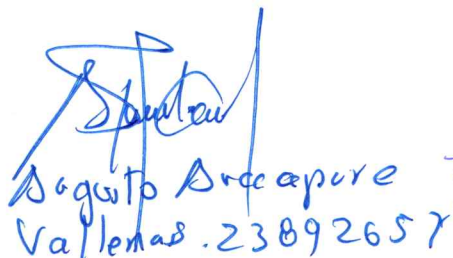 Augusto Arccapure
Vallenas. 23892657